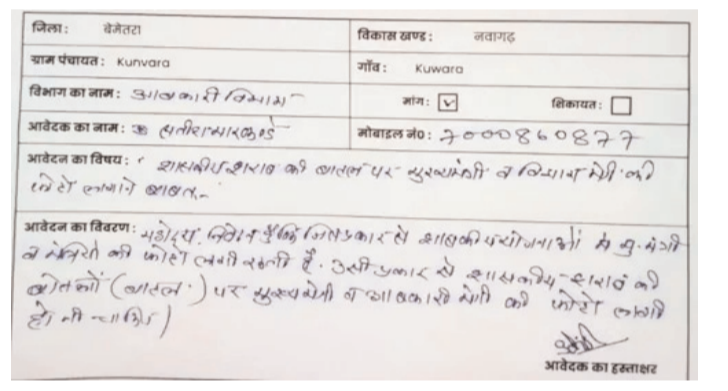 जिला: बेमेतरा विकास खण्ड: नवागढ़
ग्राम पंचायत: Kunvara गाँव: Kuwara
विभाग का नाम: आबकारी विभाग मांग: शिकायत:
आवेदक का नाम: सतीश मारकण्डे मोबाइल नं०: 7000860877
आवेदन का विषय: शासकीय शराब की बातल पर मुख्यमंत्री व विभाग मंत्री की
फोटो लगाने बाबत.
आवेदन का विवरण: महोदय, निवेदन है कि जिस प्रकार से शासकीय योजनाओं में मु. मंत्री
व मंत्रियों की फोटो लगी रहती है. उसी प्रकार से शासकीय शराब की
बोतलों (बातल) पर मुख्यमंत्री व आबकारी मंत्री की फोटो लगी
होनी चाहिए)
आवेदक का हस्ताक्षर